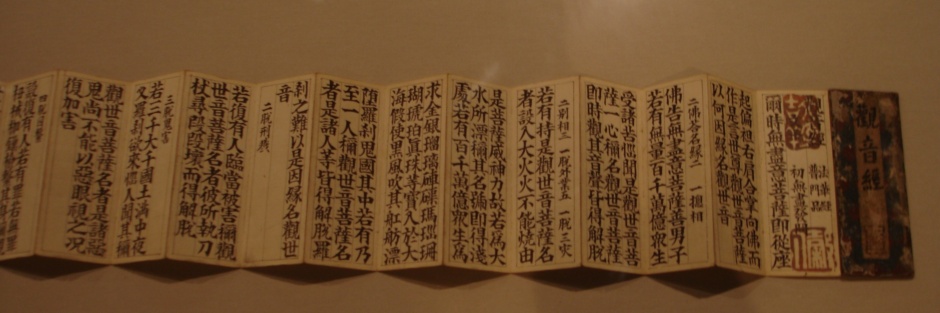 觀音經
爾時無盡意菩薩即從座
起偏袒右肩合掌向佛而
作是言世尊觀世音菩薩
以何因緣名觀世音
二佛答名釋二 一捴相
佛告無盡意菩薩善男子
若有無量百千萬億衆生
受諸苦惱聞是觀世音菩
薩一心稱名觀世音菩薩
即時觀其音聲皆得解脫
二別相三 一脫外業五 一脫火
若有持是觀世音菩薩名
者設入大火火不能燒由
是菩薩威神力故若為大
水所漂稱其名號即得淺
處若有百千萬億衆生為
求金銀瑠璃硨磲瑪瑙珊
瑚琥珀真珠等寶入於大
海假使黒風吹其舡舫漂
墮羅剎鬼國其中若有乃
至一人稱觀世音菩薩名
者是諸人等皆得解脫羅
剎之難以是因緣名觀世
音
二脫刑戮
若復有人臨當被害稱觀
世音菩薩名者彼所執刀
杖尋段段壞而得解脫
三脫鬼害
若三千大千國土滿中夜
叉羅剎欲來惱人聞其稱
觀世音菩薩名者是諸惡
鬼尚不能以惡眼視之况
復加害
設復有人若有罪若無罪